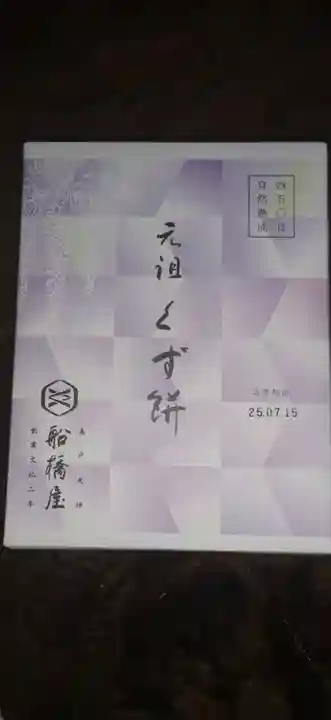 四五〇日
自然発酵
元祖くず餅
消費期限
25.07.15
亀戸天神
船橋屋
創業文化二年